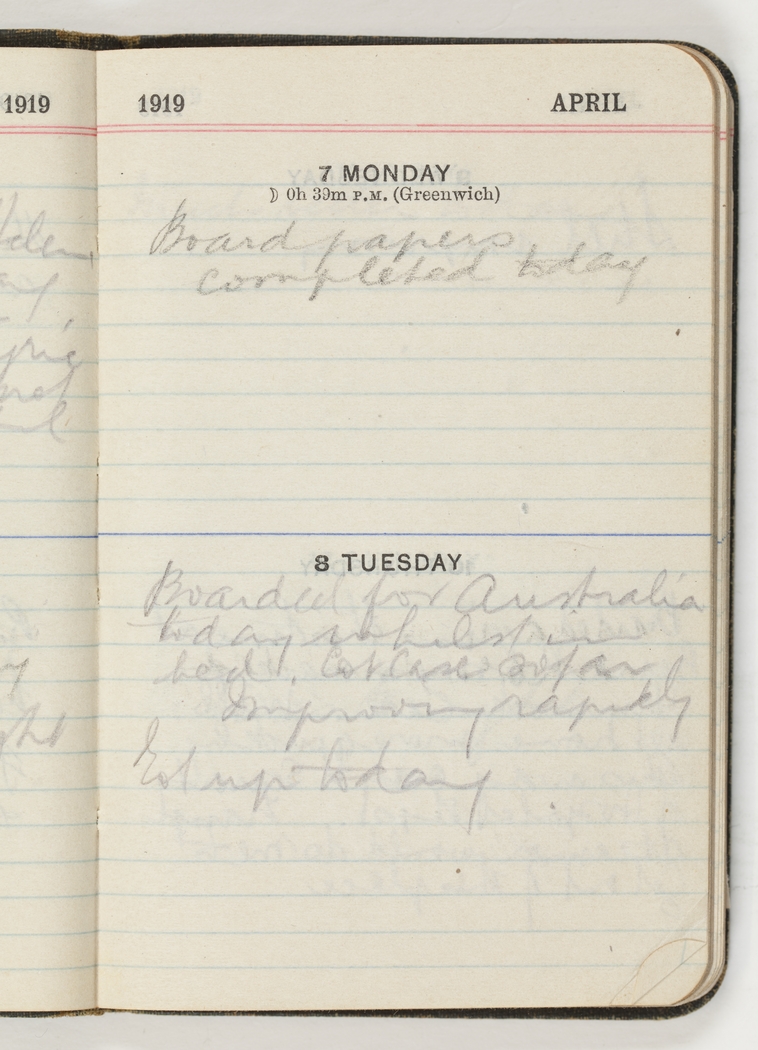 1919
1919 APRIL
7 MONDAY
☽ 0h 39m P.M. (Greenwich)
Board papers
completed today
8 TUESDAY
Boarded for Australia
today whilst in
bed. Cot Case so far
Improving rapidly
Got up today